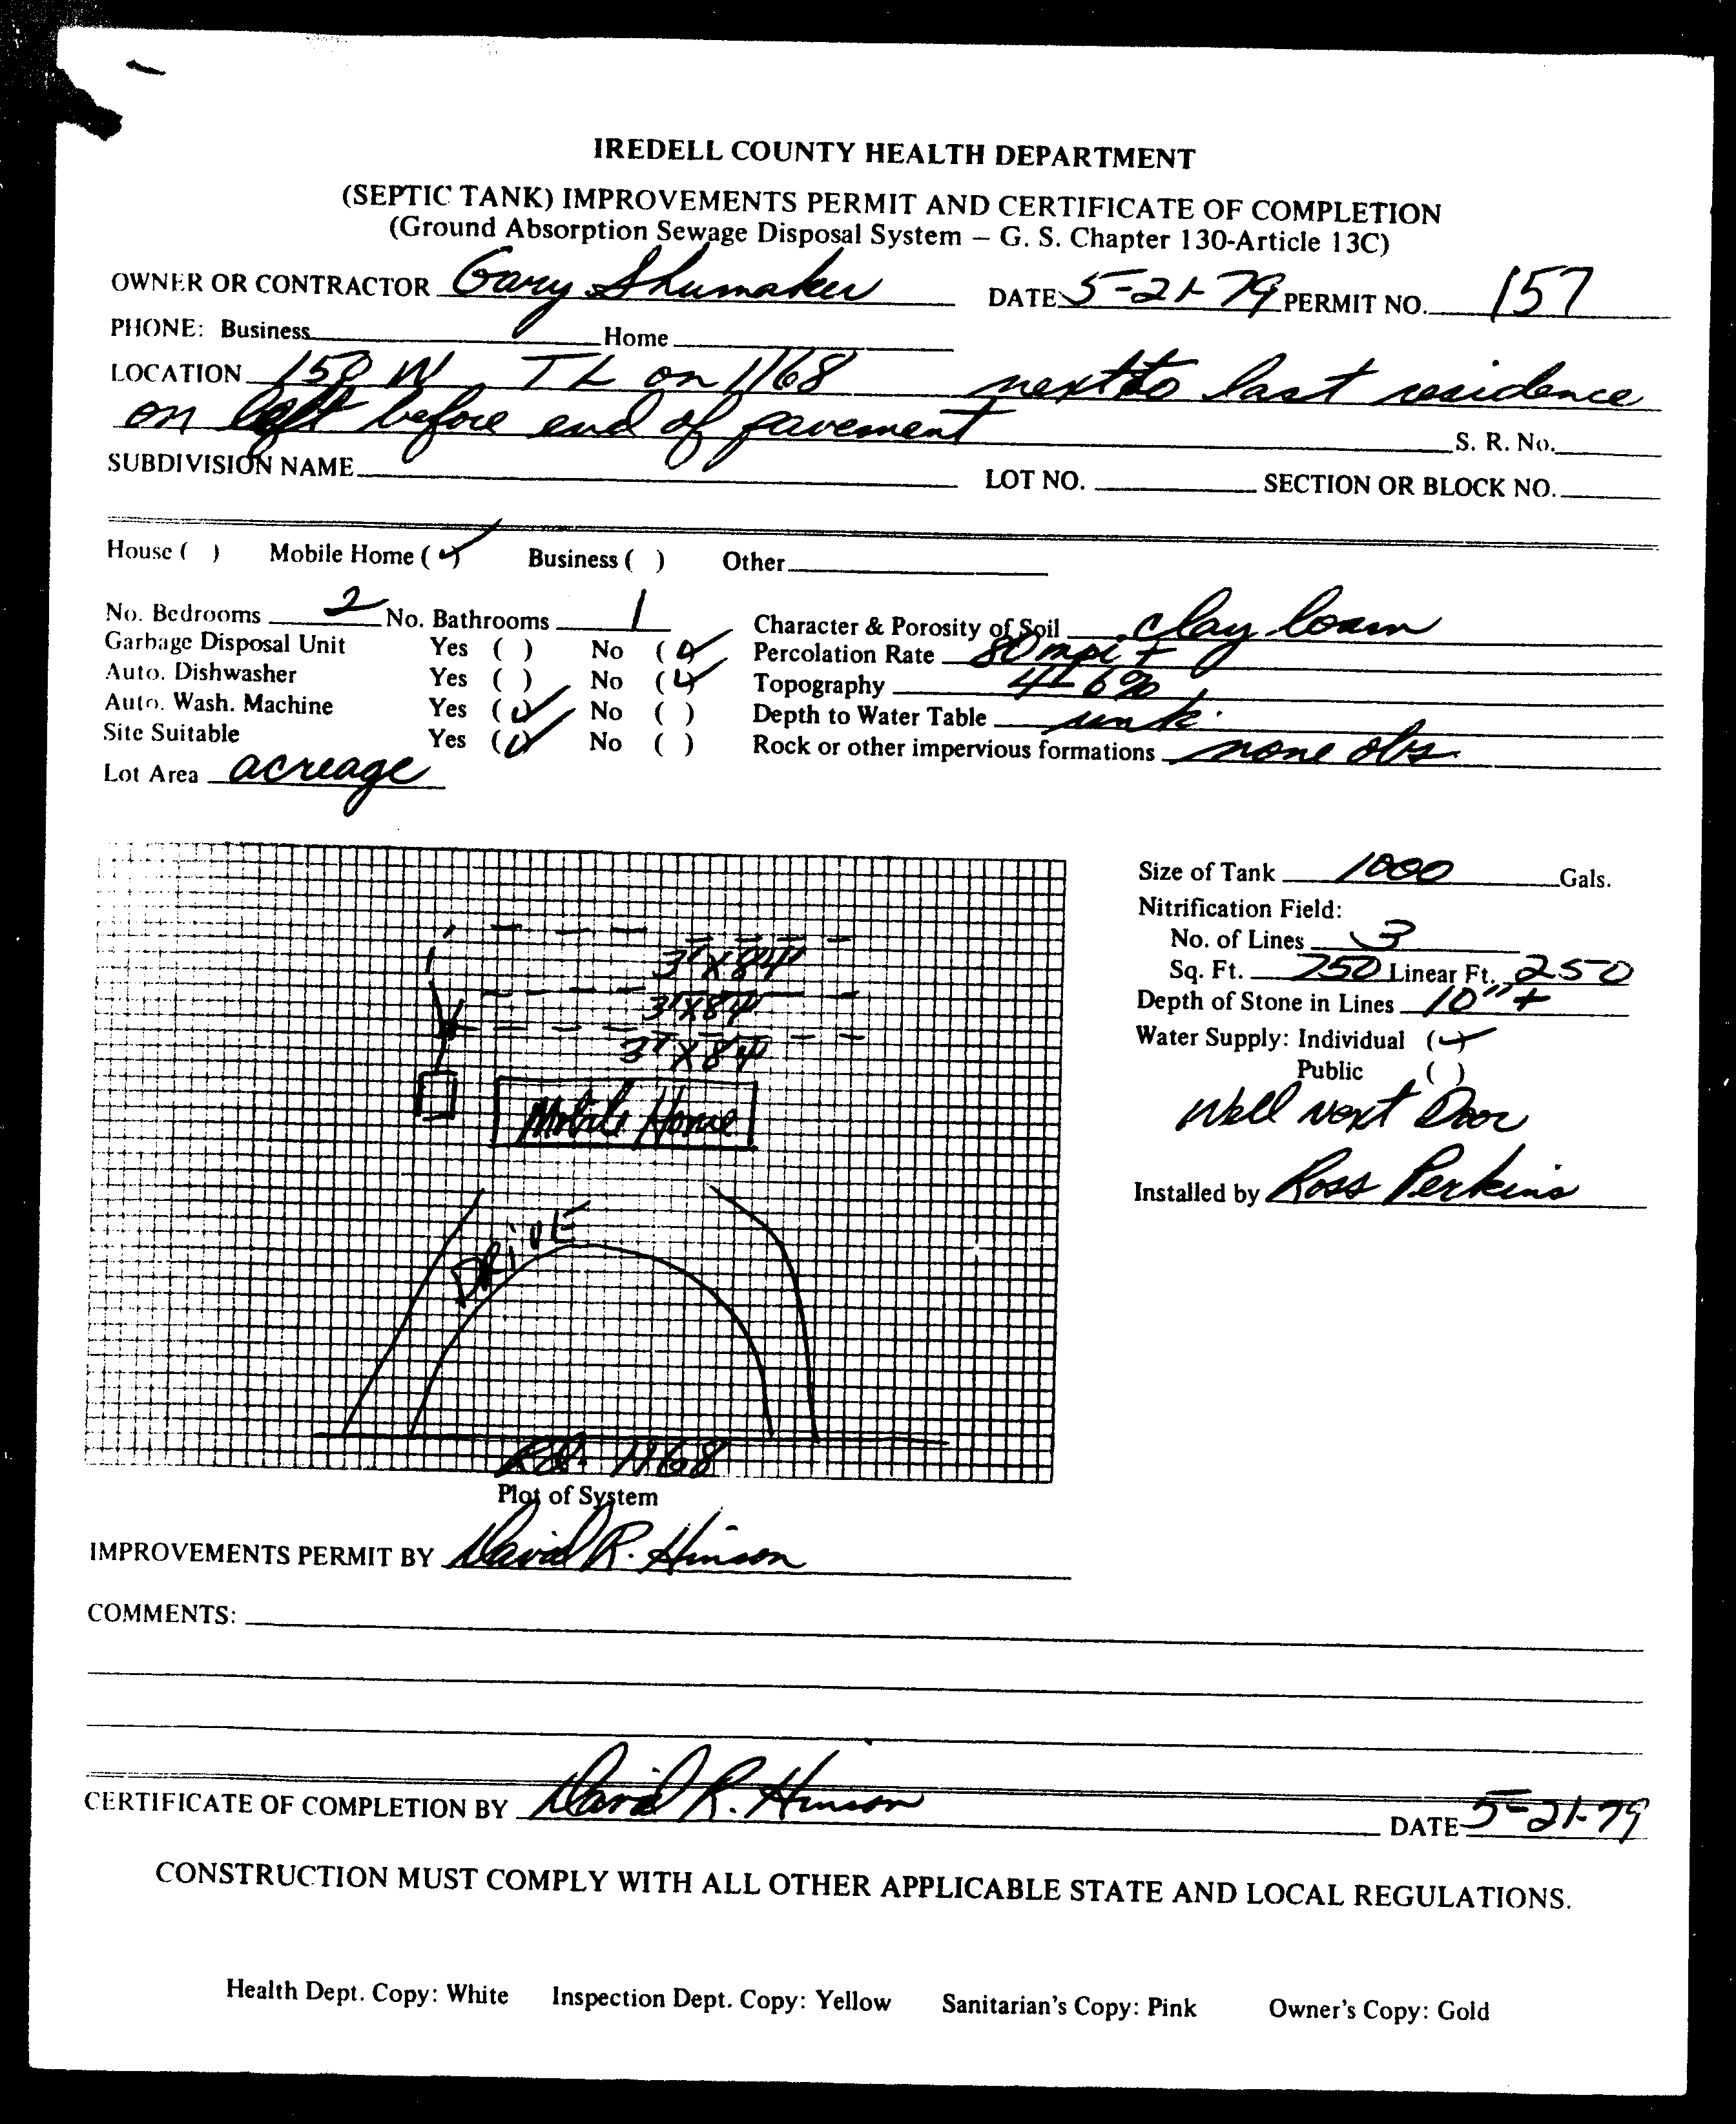 IREDELL COUNTY HEALTH DEPARTMENT
(SEPTIC TANK) IMPROVEMENTS PERMIT AND CERTIFICATE OF COMPLETION
(Ground Absorption Sewage Disposal System – G. S. Chapter 130-Article 13C)
OWNER OR CONTRACTOR Gary Shumaker DATE 5-21-79 PERMIT NO. 157
PHONE: Business Home
LOCATION 150 W TL on 1168 next to last residence
on left before end of pavement S. R. No.
SUBDIVISION NAME LOT NO. SECTION OR BLOCK NO.
House ( ) Mobile Home (✓) Business ( ) Other
No. Bedrooms 2 No. Bathrooms 1 Character & Porosity of Soil clay loam
Garbage Disposal Unit Yes ( ) No (✓) Percolation Rate 80 mpi +
Auto. Dishwasher Yes ( ) No (✓) Topography 4-6%
Auto. Wash. Machine Yes (✓) No ( ) Depth to Water Table unk.
Site Suitable Yes (✓) No ( ) Rock or other impervious formations none obs.
Lot Area acreage
Size of Tank 1000 Gals.
Nitrification Field:
No. of Lines 3
Sq. Ft. 750 Linear Ft. 250
Depth of Stone in Lines 10" +
Water Supply: Individual (✓)
Public ( )
Well next Door
Installed by Ross Perkins
3' X 84
3' X 84
3' X 84
Mobile Home
DRIVE
Rd. 1168
Plot of System
IMPROVEMENTS PERMIT BY David R. Hinson
COMMENTS:
CERTIFICATE OF COMPLETION BY David R. Hinson DATE 5-21-79
CONSTRUCTION MUST COMPLY WITH ALL OTHER APPLICABLE STATE AND LOCAL REGULATIONS.
Health Dept. Copy: White Inspection Dept. Copy: Yellow Sanitarian's Copy: Pink Owner's Copy: Gold